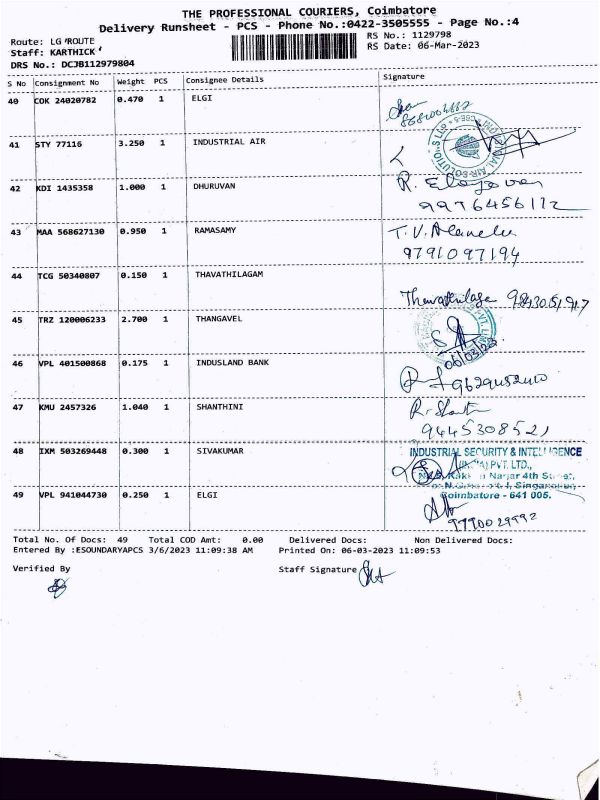 THE PROFESSIONAL COURIERS, Coimbatore
Delivery Runsheet - PCS - Phone No.:0422-3505555 - Page No.:4
Route: LG ROUTE
Staff: KARTHICK
DRS No.: DCJB112979804
RS No.: 1129798
RS Date: 06-Mar-2023
S No Consignment No Weight PCS Consignee Details Signature
40 COK 24020782 0.470 1 ELGI
41 STY 77116 3.250 1 INDUSTRIAL AIR
42 KDI 1435358 1.000 1 DHURUVAN
9976456112
43 MAA 568627130 0.950 1 RAMASAMY T.V.
9791097194
44 TCG 50340807 0.150 1 THAVATHILAGAM
Thavathilaga
45 TRZ 120006233 2.700 1 THANGAVEL
06/03/23
46 VPL 401500868 0.175 1 INDUSLAND BANK
47 KMU 2457326 1.040 1 SHANTHINI
9445308521
48 IXM 503269448 0.300 1 SIVAKUMAR INDUSTRIAL SECURITY & INTELLIGENCE
PVT. LTD.,
Nagar 4th Street,
Coimbatore - 641 005.
49 VPL 941044730 0.250 1 ELGI
Total No. Of Docs: 49 Total COD Amt: 0.00 Delivered Docs: Non Delivered Docs:
Entered By :ESOUNDARYAPCS 3/6/2023 11:09:38 AM Printed On: 06-03-2023 11:09:53
Verified By Staff Signature